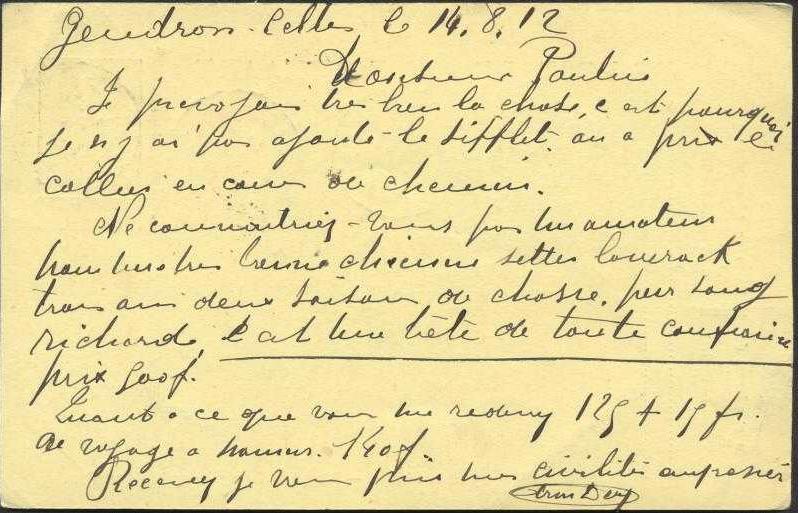 Gendron-Celles le 14.8.12
Monsieur Paulin
Je prevoyais tres bien la chose, c est pourquoi
je n y ai pas ajouté le sifflet, on a prix le
collier en cours de chemin.
Ne connaitriez-vous pas un amateur
pour une tres bonne chienne setter laverack
trois ans deux saisons de chasse, pur sang
richard, c est une bête de toute confiance
prix 300f.
Quant a ce que vous me redevez 125 + 15 frs.
de voyage a namur. 140f
Recevez je vous prie mes civilités empressées